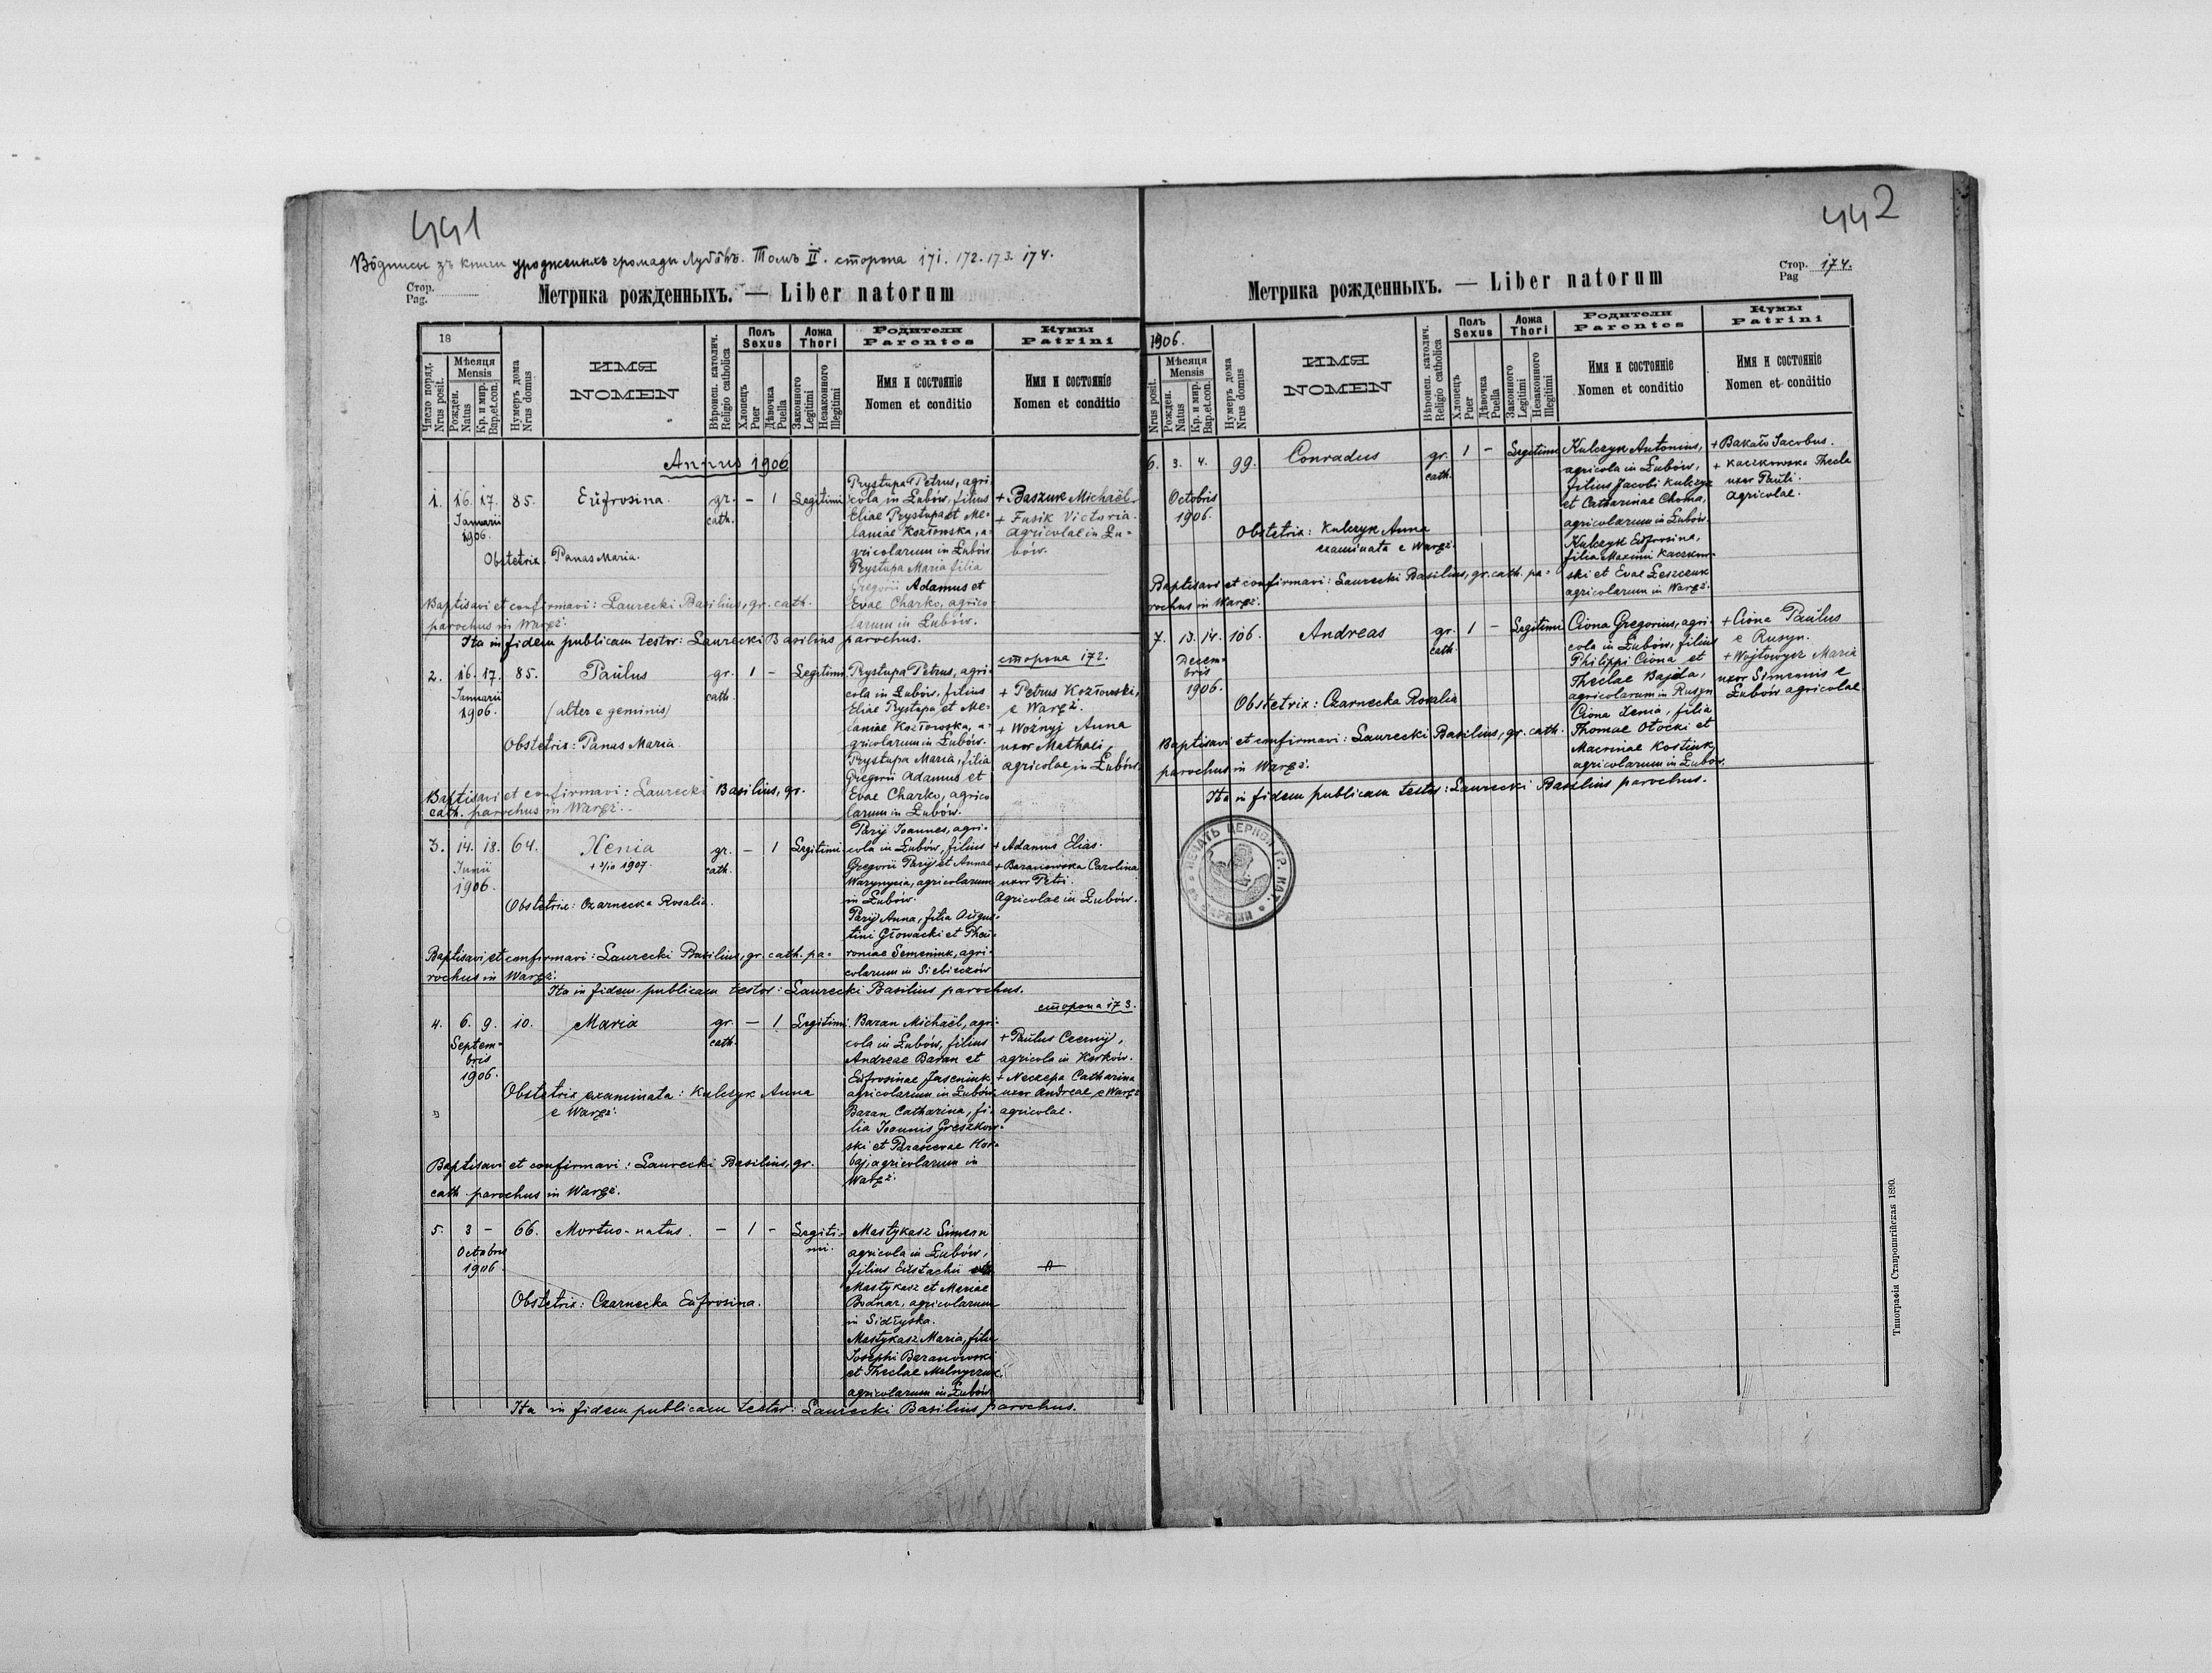 441
Вôдписы зъ книги урожденныхъ громады Лубôвъ. Томъ II. сторона 171. 172. 173. 174.
Стор.
Pag.
Метрика рожденныхъ. — Liber natorum
18
Число поряд.
Nrus posit.
Мѣсяця
Mensis
Рожден.
Natus
Кр. и мир.
Bap.et.con.
Нумеръ дома
Nrus domus
ИМЯ
NOMEN
Вѣроисп. католич.
Religio catholica
Полъ
Sexus
Хлопецъ
Puer
Дѣвочка
Puella
Ложа
Thori
Законного
Legitimi
Незаконного
Illegitimi
Родители
Parentes
Имя и состоянiе
Nomen et conditio
Кумы
Patrini
Имя и состоянiе
Nomen et conditio
Annus 1906
1. 16. 17. 85. Eufrosina. gr. — 1 Legitimi
Januarii cath.
1906.
Obstetrix: Panas Maria.
Prystupa Petrus, agri-
cola in Łubów, filius
Eliae Prystupa et Me-
laniae Kozłowska, a-
gricolarum in Łubów.
Prystupa Maria filia
Gregorii Adamus et
Evae Charko, agrico-
larum in Łubów.
+ Baszuk Michaël
+ Fusik Victoria.
agricolae in Łu-
bów.
Baptisavi et confirmavi: Laurecki Basilius, gr. cath.
parochus in Waręż.
Ita in fidem publicam testor: Laurecki Basilius parochus.
сторона 172.
2. 16. 17. 85. Paulus gr. 1 — Legitimi
Januarii cath
1906. (alter e geminis)
Obstetrix: Panas Maria.
Prystupa Petrus, agri-
cola in Łubów, filius
Eliae Prystupa et Me-
laniae Kozłowska, a-
gricolarum in Łubów.
Prystupa Maria, filia
Gregorii Adamus et
Evae Charko, agrico
larum in Łubów.
+ Petrus Kozłowski,
e Waręż.
+ Woźnyj Anna
uxor Mathaei,
agricolae in Łubów.
Baptisavi et confirmavi: Laurecki Basilius, gr.
cath. parochus in Waręż.
3. 14. 18. 64. Xenia gr. — 1 Legitimi
Junii cath.
1906.
Obstetrix: Czarnecka Rosalia.
Paryj Joannes, agri-
cola in Łubów, filius
Gregorii Paryj et Annae
Warynycia, agricolarum
in Łubów.
Paryj Anna, filia Augus-
tini Głowacki et Pheu-
roniae Semeniuk, agri-
colarum in Siebieczów
+ Adamus Elias.
+ Baranowska Carolina
uxor Petri.
Agricolae in Łubów.
Baptisavi et confirmavi: Laurecki Basilius, gr. cath. pa-
rochus in Waręż.
Ita in fidem publicam testor: Laurecki Basilius parochus.
сторона 173.
4. 6. 9. 10. Maria gr. — 1 Legitimi
Septem- cath
bris
1906.
Obstetrix examinata: Kulczyk Anna
e Waręż.
Baran Michaël, agri-
cola in Łubów, filius
Andreae Baran et
Eufrosinae Jaseniuk,
agricolarum in Łubów.
Baran Catharina, fi-
lia Joannis Greszkow-
ski et Parascevae Hor-
baj, agricolarum in
Waręż.
+ Paulus Czernyj,
agricola in Korków.
+ Neczepa Catharina
uxor Andreae, e Waręż
agricolae.
Baptisavi et confirmavi: Laurecki Basilius, gr.
cath parochus in Waręż.
5. 3 — 66. Mortuo-natus. — 1 — Legiti-
Octobris mi.
1906.
Obstetrix: Czarnecka Eufrosina.
Mastykasz Simeon
agricola in Łubów,
filius Eustachii
Mastykasz et Mariae
Bodnar, agricolarum
in Sidłyska.
Mastykasz Maria, filia
Josephi Baranowski
et Theclae Melnyczuk,
agricolarum in Łubów
Ita in fidem publicam testor: Laurecki Basilius parochus.
442
Стор.
Pag 174.
Метрика рожденныхъ. — Liber natorum
1906.
Nrus posit.
Мѣсяця
Mensis
Рожден.
Natus
Кр. и мир.
Bap.et.con.
Нумеръ дома
Nrus domus
ИМЯ
NOMEN
Вѣроисп. католич.
Religio catholica
Полъ
Sexus
Хлопецъ
Puer
Дѣвочка
Puella
Ложа
Thori
Законного
Legitimi
Незаконного
Illegitimi
Родители
Parentes
Имя и состоянiе
Nomen et conditio
Кумы
Patrini
Имя и состоянiе
Nomen et conditio
6. 3. 4. 99. Conradus gr. 1 — Legitimi
cath.
Octobris
1906.
Obstetrix: Kulczyk Anna
examinata e Waręż.
Kulczyk Antonius,
agricola in Łubów,
filius Jacobi Kulczyk
et Catharinae Choma,
agricolarum in Łubów.
Kulczyk Eufrosina,
filia Maximi Kaczkow-
ski et Evae Leszczuk
agricolarum in Waręż.
+ Bakało Jacobus.
+ Kaczkowska Thecla
uxor Pauli.
agricolae.
Baptisavi et confirmavi: Laurecki Basilius, gr. cath. pa-
rochus in Waręż.
7. 13. 14. 106. Andreas gr. 1 — Legitimi
Decem- cath.
bris
1906.
Obstetrix: Czarnecka Rosalia
Ciona Gregorius, agri-
cola in Łubów, filius
Philippi Ciona et
Theclae Bajda,
agricolarum in Rusyn
Ciona Xenia, filia
Thomae Otocki et
Macrinae Kostiuk,
agricolarum in Łubów.
+ Ciona Paulus
e Rusyn.
+ Wojtowycz Maria
uxor Simeonis e
Łubów agricolae.
Baptisavi et confirmavi: Laurecki Basilius, gr. cath.
parochus in Waręż.
Ita in fidem publicam testor: Laurecki Basilius parochus.
ПЕЧАТЬ ЦЕРКВИ ГР. КАТ.
Типографія Ставропигійская 1890.